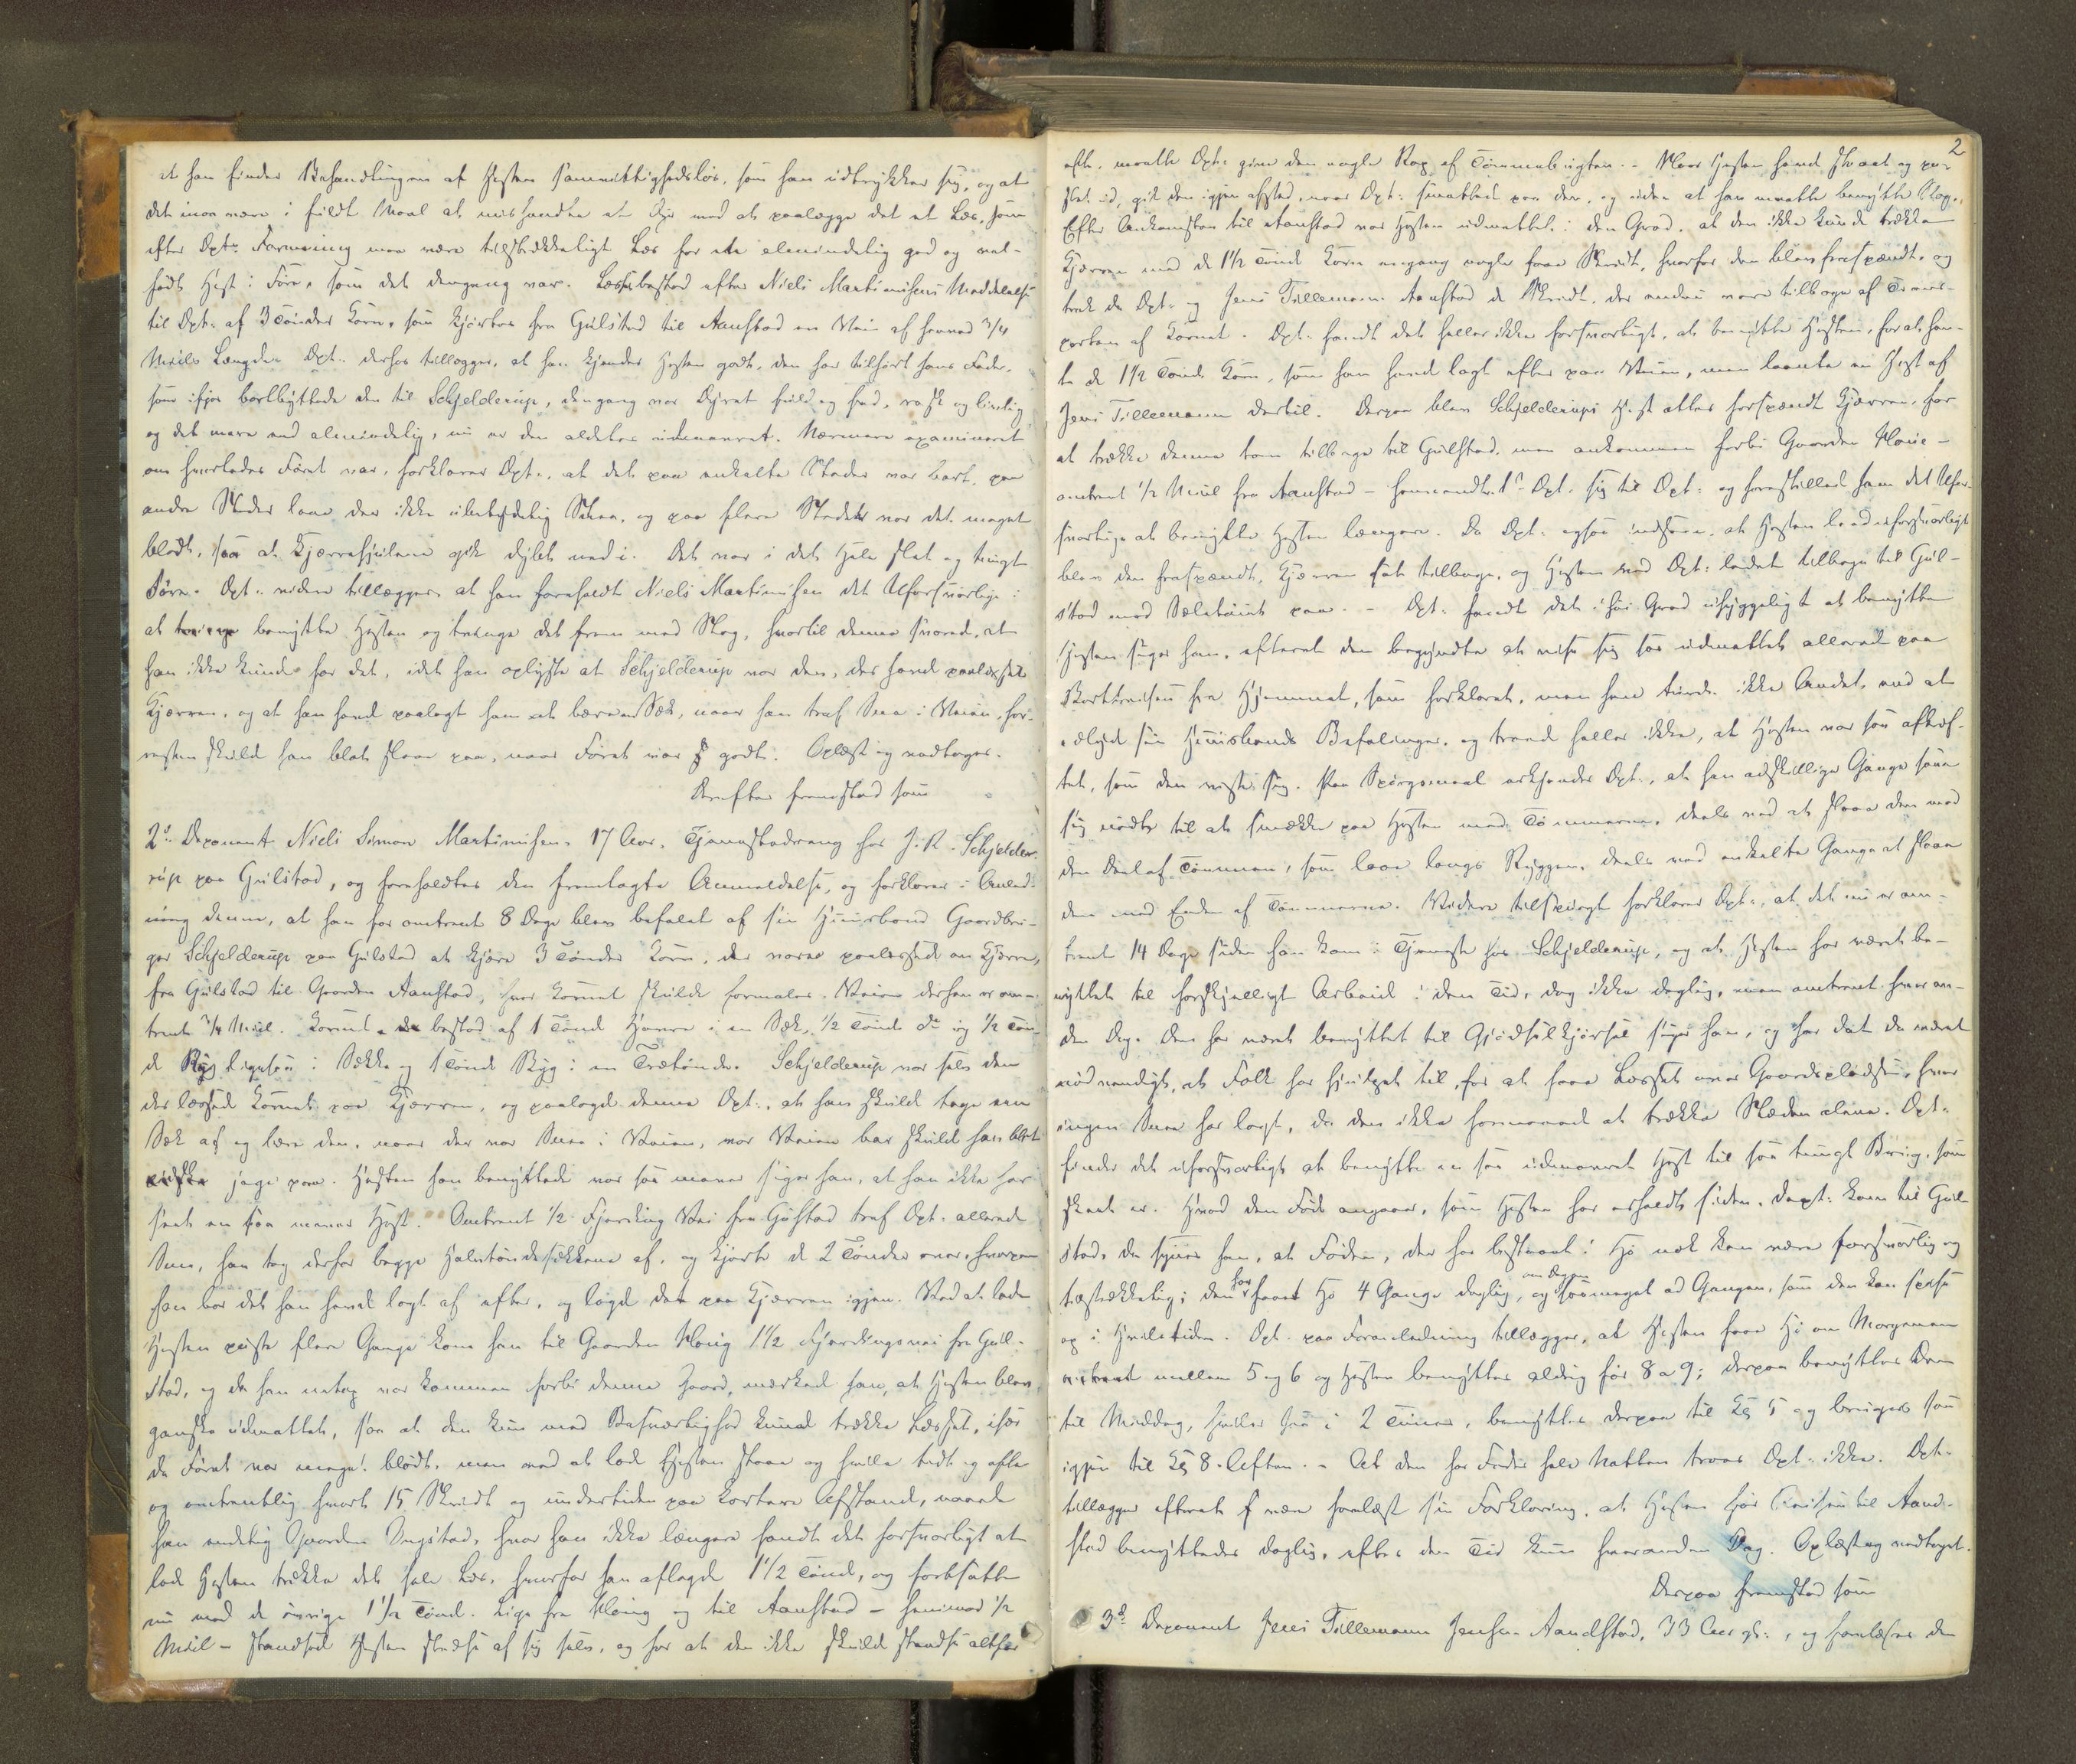 at han finder Behandlingen af Hesten samvittighedsløs, som han udtrykker sig, og at
det maa være i fuldt Maal at mishandle et Dyr med at paalægge det et Læs, som
efter Dpts Formening maa være tilstrækkeligt Læs for en almindelig god og vel-
født Hest i Føre, som det dengang var. Læsset bestod efter Niels Martinusens Meddelelse
til Dpt. af 3 Tønder Korn, som kjørtes fra Gulstad til Aanstad en Vei af henved 3/4
Miils Længde. Dpt. derhos tillægger, at han kjender Hesten godt, den har tilhørt hans Fader,
som ifjor bortbyttede den til Schjelderup, dengang var Dyret fuld og fed, rask og livlig
og det mere end almindelig, nu er den aldeles udmavret. Nærmere examineret
om hvorledes Føret var, forklarer Dpt., at det paa enkelte Steder var bart, paa
andre Steder laae der ikke ubetydelig Snee, og paa flere Steder var det meget
blødt, saa at Kjærrehjulene gik dybt ned i. Det var i det Hele slet og tungt
Føre. Dpt. videre tillægger at han foreholdt Niels Martinusen det Uforsvarlige i
at benytte Hesten og tvinge det frem med Slag, hvortil denne svarede, at
han ikke kunde for det, idet han oplyste at Schjelderup var den, der havde paalæsset
Kjærren, og at han havde paalagt ham at bære en Sæk, naar han traf Snee i Veien, for-
resten skulde han blot slaae paa, naar Føret var godt. Oplæst og vedtaget.
Derefter fremstod som
2d Deponent Niels Simon Martinusen, 17 Aar, Tjenestedreng hos J. R. Schjelde-
rup paa Gulstad, og foreholdtes den fremlagte Anmeldelse, og forklarer i Anled-
ning denne, at han for omtrent 8 Dage blev befalet af sin Huusbond Gaardbru-
ger Schjelderup paa Gulstad at kjøre 3 Tønder Korn, der vare paalæssede en Kjærre,
fra Gulstad til Gaarden Aanstad, hvor Kornet skulde formales. Veien derhen er om-
trent 3/4 Miil. Kornet bestod af 1 Tønde Havre i en Sæk, 1/2 Tønde do og 1/2 Tøn-
de Byg ligesaa i Sække og 1 Tønde Byg i en Trætønde. Schjelderup var selv den
der læssede Kornet paa Kjærren, og paalagde denne Dpt., at han skulde tage een
Sæk af og bære den, naar der var Snee i Veien, var Veien bar skulde han blot
jage paa. Hesten han benyttede var saa mager siger han, at han ikke har
seet en saa mager Hest. Omtrent 1/2 Fjerding Vei fra Gulstad traf Dpt. allerede
Snee, han tog derfor begge Halvtøndesækkene af, og kjørte de 2 Tønder over, hvorpaa
han bar det han havde lagt af efter, og lagde det paa Kjærren igjen. Ved at lade
Hesten puste flere Gange kom han til Gaarden Maurnes 1 1/2 Fjerdingsvei fra Gul-
stad, og da han netop var kommen forbi denne Gaard, mærkede han, at Hesten blev
ganske udmattet, saa at den kun med Besværlighed kunde trække Læsset, især
da Føret var meget blødt, men ved at lade Hesten staae og hvile tidt og ofte
og omtrentlig hvert 15 Skridt og undertiden paa kortere Afstand, naaede
han endelig Gaarden Ongstad, hvor han ikke længere fandt det forsvarligt at
lade Hesten trække det hele Læs, hvorfor han aflagde 1 1/2 Tønde, og fortsatte
nu med de øvrige 1 1/2 Tønde. Lige fra og til Aanstad – henimod 1/2
Miil – standsede Hesten stedse af sig selv, og for at den ikke skulde standse altfor
2
ofte, maatte Dpt. give den nogle Rap af Tømmeløigten. – Naar Hesten havde staaet og pu-
stet ud, gik den igjen afsted, naar Dpt. smattede paa den, og uden at han maatte benytte Slag.
Efter Ankomsten til Aanstad var Hesten udmattet i den Grad, at den ikke kunde trække
Kjærren med de 1 1/2 Tønde Korn engang nogle faae Skridt, hvorfor den blev fraspændt, og
trak da Dpt. og Jens Tillemann Aanstad de Skridt, der endnu vare tilbage af Trans-
porten af Kornet. Dpt. fandt det heller ikke forsvarligt, at benytte Hesten, for at hen-
te de 1 1/2 Tønde Korn, som han havde lagt efter paa Veien, men laante en Hest af
Jens Tillemann dertil. Derpaa blev Schjelderups Hest atter forspændt Kjærren, for
at trække denne tom tilbage til Gulstad, men ankommen forbi Gaarden
omtrent 1/2 Miil fra Aanstad – henvendte 1ste Dpt. sig til Dpt. og forestillede ham det Ufor-
svarlige at benytte Hesten længere. Da Dpt. ogsaa indsaae, at Hesten leed uforsvarligt
blev den fraspændt, Kjærren sat tilbage, og Hesten med Dpt. ledet tilbage til Gul-
stad med Sæletøiet paa. – Dpt. fandt det i høi Grad uhyggeligt at benytte
Hesten siger han, efterat den begyndte at vise sig saa udmattet allerede paa
Bortreisen fra Hjemmet, som forklaret, men han turde ikke Andet, end at
adlyde sin Huusbonds Befalinger, og troede heller ikke, at Hesten var saa afkræf-
tet, som den viste sig. Paa Spørgsmaal erkjender Dpt., at han adskillige Gange saae
sig nødt til at smække paa Hesten med Tømmerne, deels ved at slaae den med
den Deel af Tømmen, som laae langs Ryggen, deels ved enkelte Gange at slaae
den med Enden af Tømmerne. Videre tilspurgt forklarer Dpt., at det nu er om-
trent 14 Dage siden han kom i Tjeneste hos Schjelderup, og at Hesten har været be-
nyttet til forskjelligt Arbeid i den Tid, dog ikke daglig, men omtrent hver an-
den Dag. Den har været benyttet til Gjødselkjørsel siger han, og har det da været
nødvendigt, at Folk har hjulpet til, for at faae Læsset over Gaardspladsen, hvor
ingen Snee har lagt, da den ikke formaaede at trække Slæden alene. Dpt.
finder det uforsvarligt at benytte en saa udmavret Hest til saa tungt Brug, som
skeet er. Hvad den Føde angaaer, som Hesten har erholdt siden Dept. kom til Gul-
stad, da synes han, at Føden, der har bestaaet i Hø nok kan være forsvarlig og
tilstrækkelig; den har faaet Hø 4 Gange daglig, og saameget ad Gangen om Dagen, som den kan spise
op i Hviletiden. Dpt. paa Foranledning tillægger, at Hesten faaer Hø om Morgenen
omtrent mellem 5 og 6 og Hesten benyttes aldrig før 8 a 9; derpaa benyttes Den
til Middag, hviler saa i 2 Timer, benyttes derpaa til Kl 5 og bruges saa
igjen til Kl 8 Aften. – At den har Foder hele Natten troer Dpt. ikke. Dpt.
tillægger efterat være forelæst sin Forklaring, at Hesten før Reisen til Aand-
stad benyttedes daglig, efter den Tid kun hverandden Dag. Oplæst og vedtaget.
Derpaa fremstod som
3d Deponent Jens Tillemann Jensen Aandstad, 33 Aar gl., og forelæses den